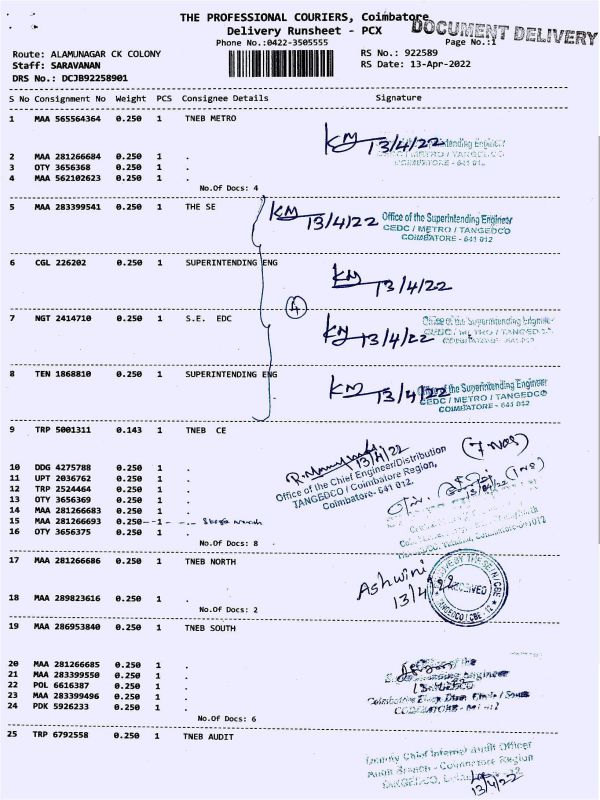 THE PROFESSIONAL COURIERS, Coimbatore
DOCUMENT DELIVERY
Delivery Runsheet - PCX
Phone No.:0422-3505555
Page No.:1
Route: ALAMUNAGAR CK COLONY
RS No.: 922589
Staff: SARAVANAN
RS Date: 13-Apr-2022
DRS No.: DCJB92258901
S No Consignment No Weight PCS Consignee Details Signature
1 MAA 565564364 0.250 1 TNEB METRO
KM 13/4/22
2 MAA 281266684 0.250 1 .
3 OTY 3656368 0.250 1 .
4 MAA 562102623 0.250 1 .
No.Of Docs: 4
5 MAA 283399541 0.250 1 THE SE
KM 13/4/22
Office of the Superintending Engineer
CEDC / METRO / TANGEDCO
COIMBATORE - 641 012
6 CGL 226202 0.250 1 SUPERINTENDING ENG
KM 13/4/22
4
7 NGT 2414710 0.250 1 S.E. EDC
KM 13/4/22
Office of the Superintending Engineer
8 TEN 1868810 0.250 1 SUPERINTENDING ENG
KM 13/4/22
Office of the Superintending Engineer
CEDC / METRO / TANGEDCO
COIMBATORE - 641 012
9 TRP 5001311 0.143 1 TNEB CE
13/4/22
Office of the Chief Engineer/Distribution
TANGEDCO / Coimbatore Region,
Coimbatore- 641 012.
10 DDG 4275788 0.250 1 .
11 UPT 2036762 0.250 1 .
12 TRP 2524464 0.250 1 .
13 OTY 3656369 0.250 1 .
14 MAA 281266683 0.250 1 .
15 MAA 281266693 0.250 1 .
16 OTY 3656375 0.250 1 .
No.Of Docs: 8
17 MAA 281266686 0.250 1 TNEB NORTH
Ashwini
13/4/22
RECEIVED
18 MAA 289823616 0.250 1 .
No.Of Docs: 2
19 MAA 286953840 0.250 1 TNEB SOUTH
20 MAA 281266685 0.250 1 .
21 MAA 283399550 0.250 1 .
22 POL 6616387 0.250 1 .
23 MAA 283399496 0.250 1 .
24 PDK 5926233 0.250 1 .
No.Of Docs: 6
25 TRP 6792558 0.250 1 TNEB AUDIT
Deputy Chief Internal Audit Officer
Audit Branch - Coimbatore Region
13/4/22